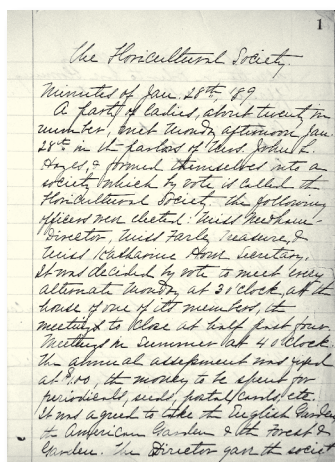 1
The Floricultural Society.
Minutes of Jan. 28th, '89.
A party of ladies, about twenty in
number, met Monday afternoon Jan.
28th in the parlors of Mrs. John L.
Hayes, & formed themselves into a
society which by vote is called the
Floricultural Society. The following
officers were elected: Miss Needham
Director, Miss Farley Treasurer, &
Miss Katharine Horn Secretary.
It was decided by vote to meet every
alternate Monday at 3 o'clock, at the
house of one of its members, the
meetings to close at half past four.
Meetings in Summer at 4 o'clock.
The annual assessment was fixed
at $1.00, the money to be spent for
periodicals, seeds, postal cards, etc.
It was agreed to take the English Garden
the American Garden & the Forest &
Garden. The Director gave the societ